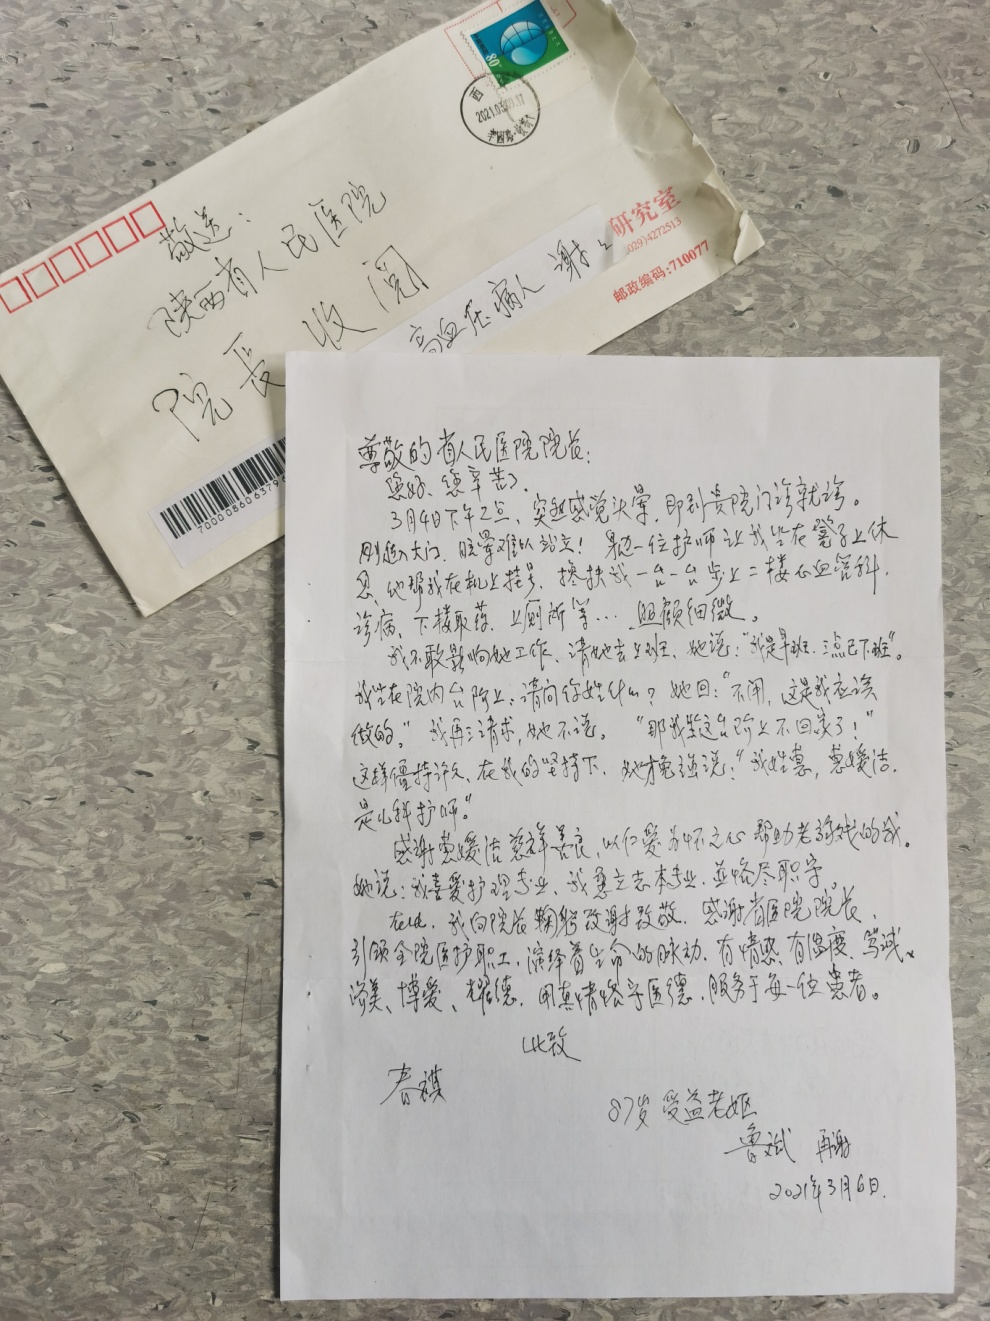 80
西
2021.03
敬送：
陕西省人民医院
院長收阅
高血压病人 谢上
研究室
(029)4272513
邮政编码:710077
7000086063796
尊敬的省人民医院院长：
您好、您辛苦了.
3月4日下午2点、突然感觉头晕，即到贵院门诊就诊。
刚进入大门、眩晕难以站立！是一位护师让我坐在凳子上休
息、他帮我在机上挂号、搀扶我一台一台步上二楼心血管科，
诊病、下楼取药、上厕所等… 照顾细微。
我不敢影响她工作、请她去上班、她说："我是早班.三点已下班"。
我坐在院内台阶上：请问你姓什么？她回："不用，这是我应该
做的。"我再三请求，她不说。"那我坐这台阶上不回家了！"
这样僵持许久、在我的坚持下、她才勉强说："我姓惠，惠媛洁.
是儿科护师。"
感谢惠媛洁慈祥善良，以仁爱为怀之心帮助老弱残的我。
她说：我喜爱护理专业、我愿立志本专业，並恪尽职守。
在此、我向院长鞠躬致谢致敬、感谢省医院院长、
引领全院医护职工、演绎着生命的脉动、有情感、有温度、笃诚、
美、博爱、耀德.用真情恪守医德，服务于每一位患者。
此致
春祺
87岁 受益老妪
鲁斌 再谢
2021年3月6日.